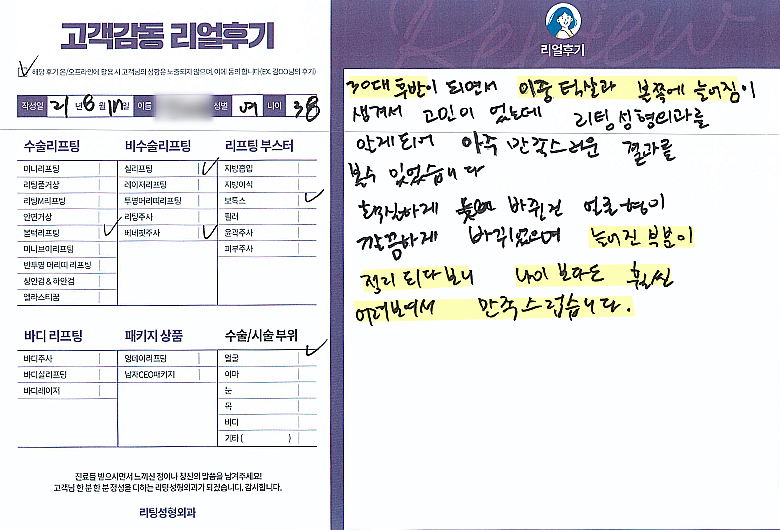 고객감동 리얼후기
해당 후기 온/오프라인에 활용 시 고객님의 성함은 노출되지 않으며, 이에 동의 합니다(EX. 김OO님의 후기)
작성일 21 년 6 월 일 이름 성별 여 나이 38
수술리프팅
미니리프팅
리팅풀거상
리팅M리프팅
안면거상
볼턱리프팅
미니브이리프팅
반투명 머리띠 리프팅
상안검 & 하안검
엘라스티꿈
비수술리프팅
실리프팅
레이저리프팅
투명머리띠리프팅
리팅주사
버네핏주사
리프팅 부스터
지방흡입
지방이식
보톡스
필러
윤곽주사
피부주사
바디 리프팅
바디주사
바디실리프팅
바디레이저
패키지 상품
원데이리프팅
남자CEO패키지
수술/시술 부위
얼굴
이마
눈
목
바디
기타 ( )
진료를 받으시면서 느끼신 점이나 칭찬의 말씀을 남겨주세요!
고객님 한 분 한 분 정성을 다하는 리팅성형외과가 되겠습니다. 감사합니다.
리팅성형외과
Review
리얼후기
30대 후반이 되면서 이중 턱살과 볼쪽에 늘어짐이
생겨서 고민이 었는데 리팅성형외과를
알게되어 아주 만족스러운 결과를
볼수 있었습니다
확실하게 바뀌건 얼굴형이
깔끔하게 바뀌었으며 늘어진 부분이
정리 되다보니 나이 보다는 훨씬
어려보여서 만족스럽습니다.